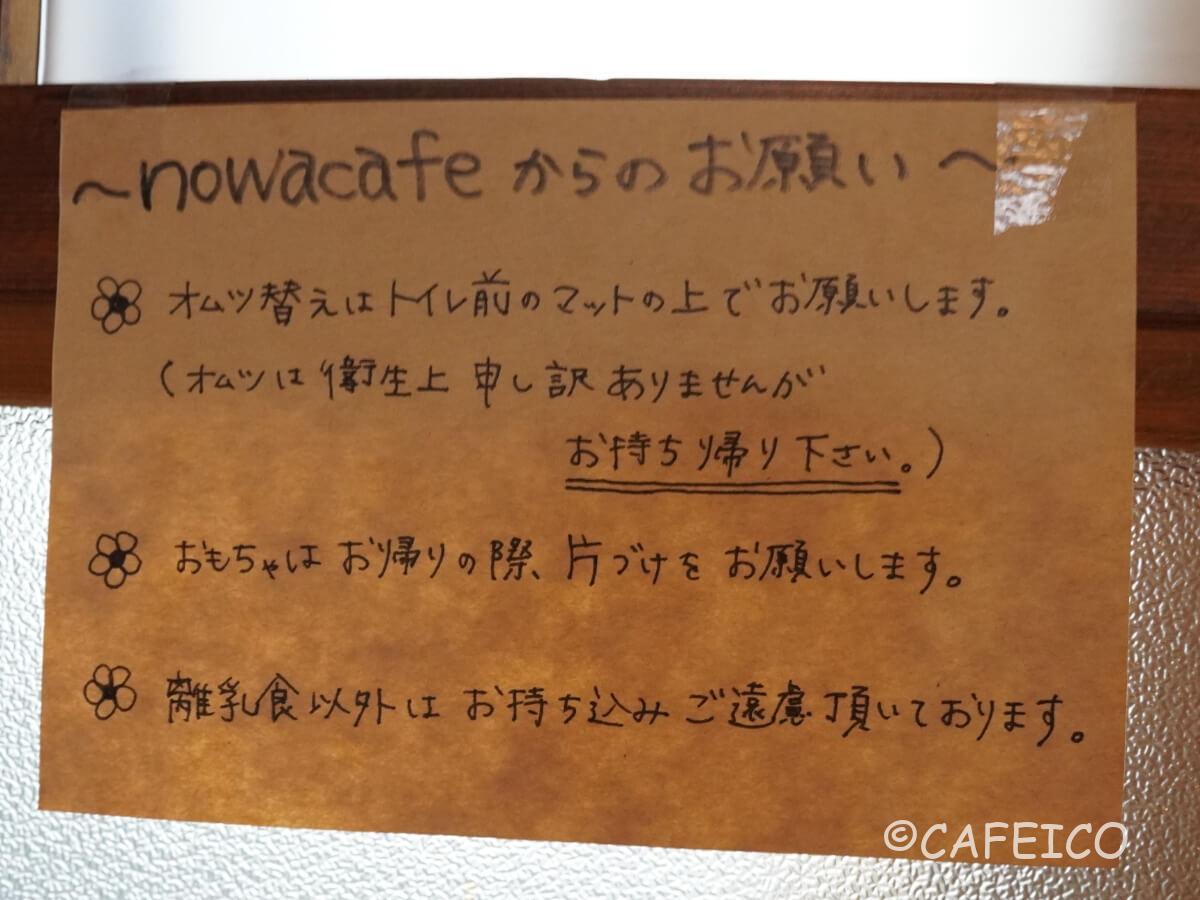 ~nowacafeからのお願い~
オムツ替えはトイレ前のマットの上でお願いします。
(オムツは衛生上申し訳ありませんが
お持ち帰り下さい。)
おもちゃはお帰りの際、片づけをお願いします。
離乳食以外はお持ち込みご遠慮頂いております。
©CAFEICO